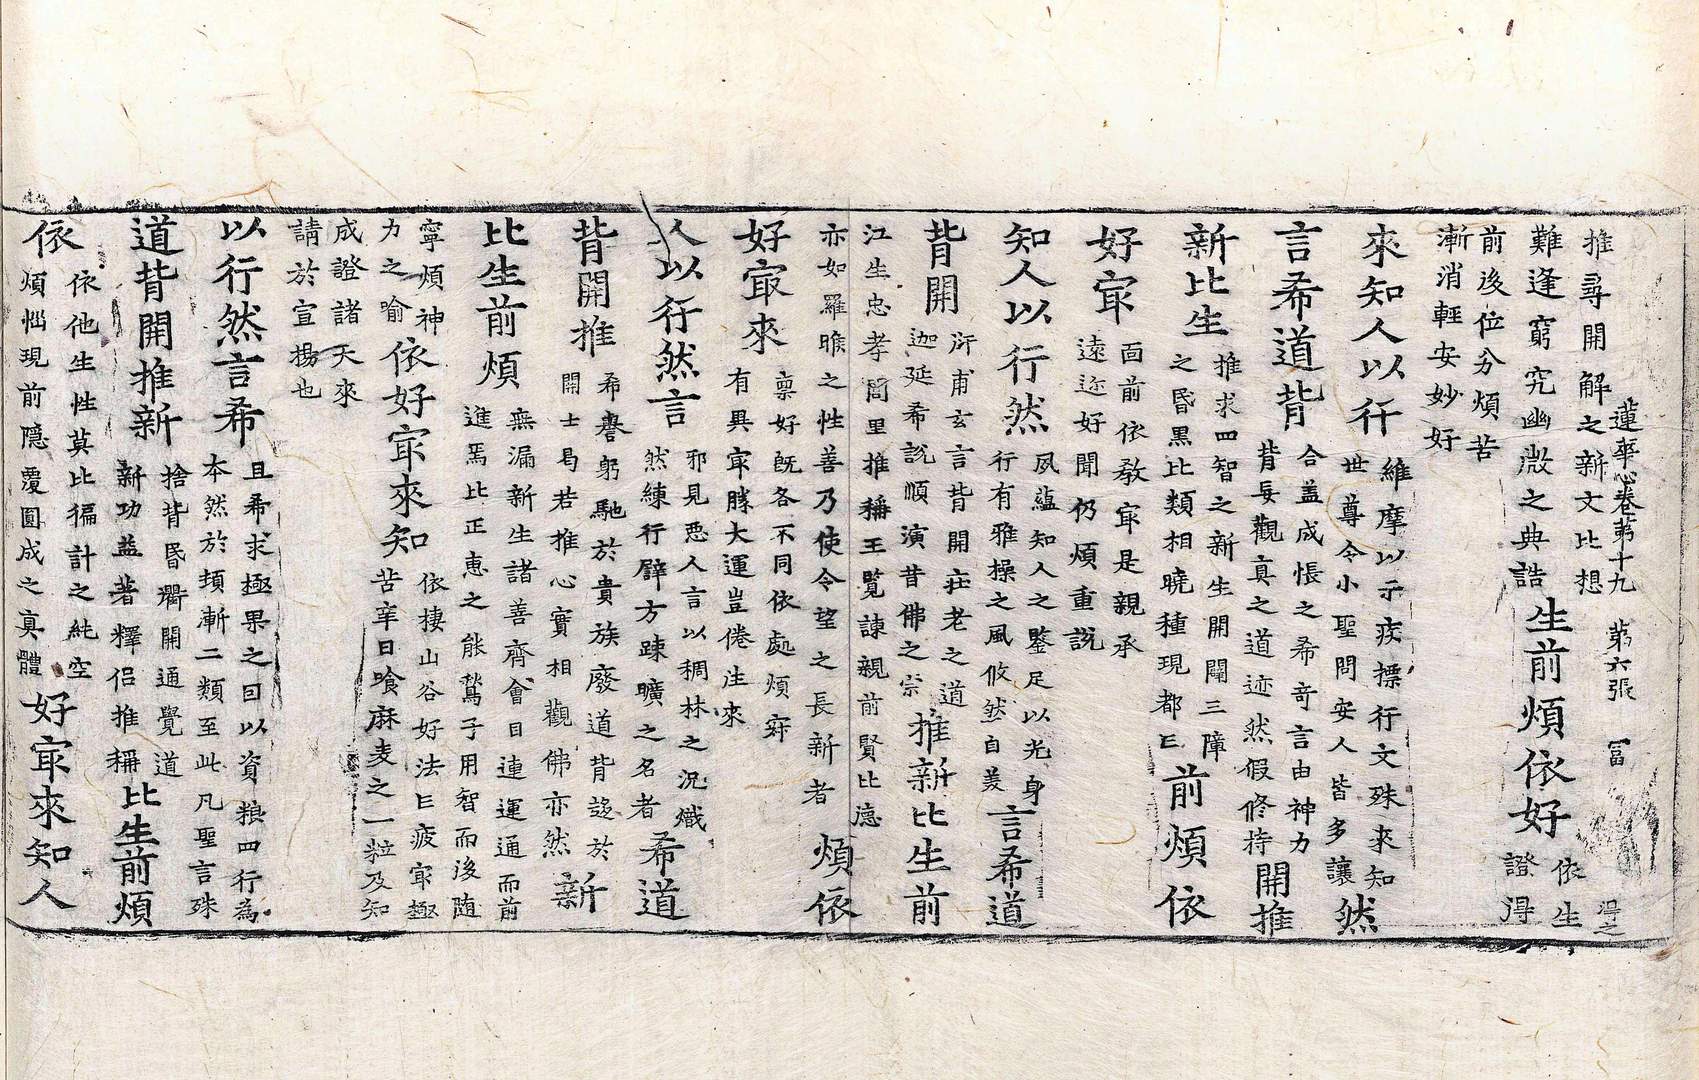 蓮華心卷第十九 第六張 冨 得之
推尋開解之新文比想
難逢窮究幽微之典誥
生前煩依好
依生
證得
前後位分煩苦
漸消輕安妙好
來知人以行
維摩以示疾標行文殊來知
世尊令小聖問安人皆多讓
然
言希道背
合盖成悵之希奇言由神力
背妄觀真之道迹然假修持
開推
新比生
推求四智之新生開闡三障
之昏黒比類相曉種現都亡
前煩依
好㝡
面前依教㝡是親承
遠近好聞仍煩重說
知人以行然
夙蘊知人之鑒足以光身
行有雅操之風攸然自美
言希道
背開
甫玄言背開莊老之道
迦延希說順演昔佛之宗
推新比生前
江生忠孝閭里推稱王覽諫親前賢比德
亦如羅睺之性善乃使令望之長新者
煩依
好㝡來
禀好既各不同依處煩寂
有異㝡勝大運豈倦注來
人以行然言
邪見惡人言以稠林之況熾
然練行擘方踈曠之名者
希道
背開推
希譽躬馳於貴族廢道背談於
開士曷若推心實相觀佛亦然
新
比生前煩
無漏新生諸善齊會目連運通而前
進焉比正恵之能鶖子用智而後随
寧煩神
力之喻
依好㝡來知
依棲山谷好法亡疲㝡極
苦辛日飡麻麦之一粒及知
成證諸天來
請於宣揚也
以行然言希
且希求極果之曰以資粮四行為
本然於頓漸二類至此凡聖言殊
道背開推新
捨背昏衢開通覺道
新功益著釋侣推稱
比生前煩
依
依他生性莫比徧計之純空
煩惱現前隱覆圓成之真體
好㝡來知人